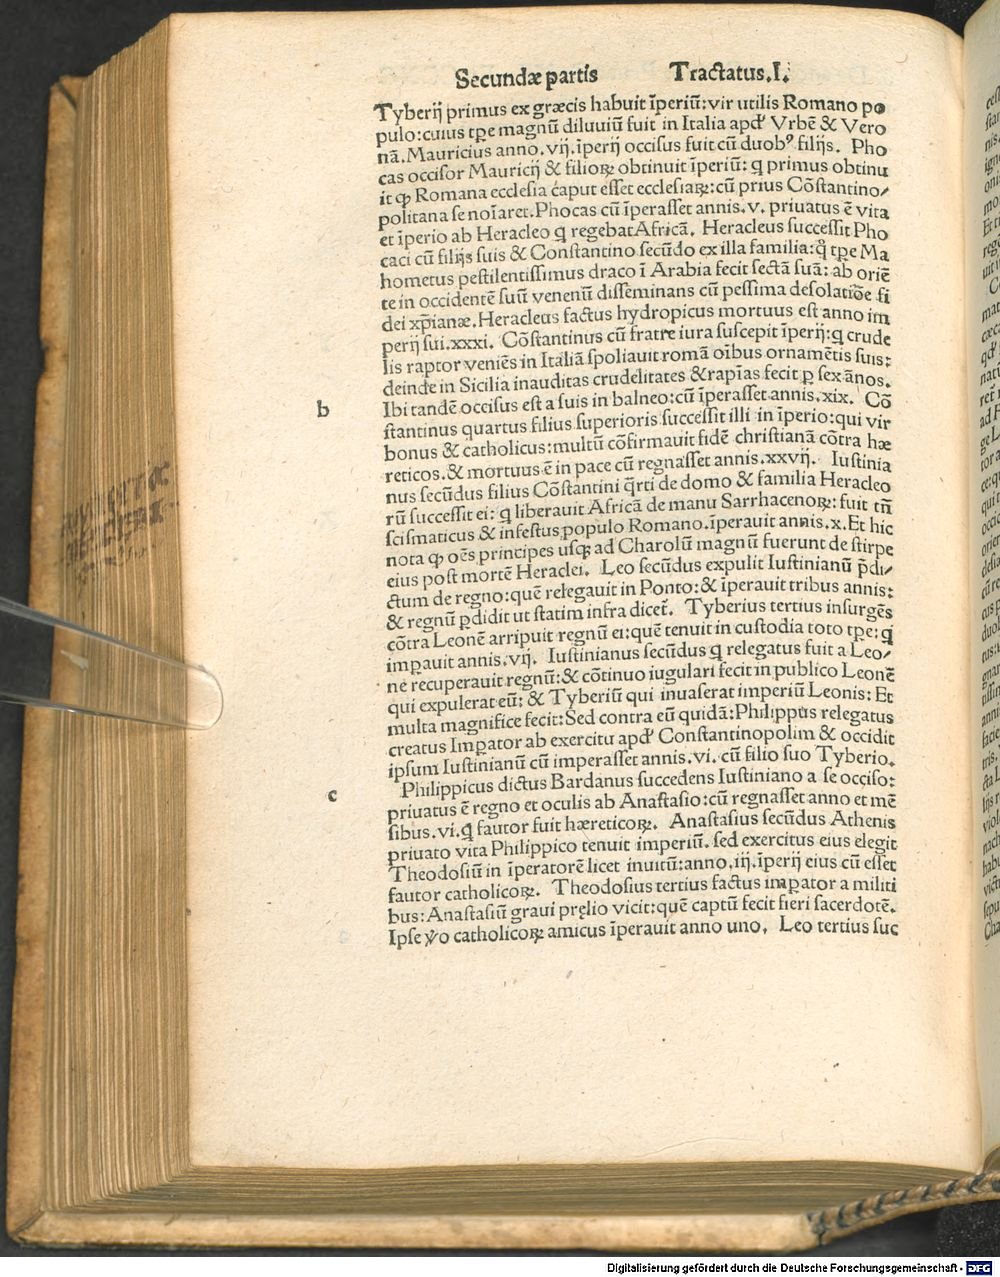 Secundæ partis Tractatus.I.
Tyberij primus ex græcis habuit īperiū:vir utilis Romano po
pulo:cuius tꝑe magnū diluuiū fuit in Italia apđ Vrbē & Vero
nā.Mauricius anno.vij.īperij occisus fuit cū duobꝰ filijs. Pho
cas occisor Mauricij & filioꝝ obtinuit īperiū: q primus obtinu
it ꝙ Romana ecclesia caput esset ecclesiaꝝ:cū prius Cōstantino/
politana se noīaret.Phocas cū īperasset annis.v. priuatus ē vita
et īperio ab Heracleo q regebat Africā. Heracleus successit Pho
caci cū filijs suis & Constantino secūdo ex illa familia:q̊ tꝑe Ma
hometus pestilentissimus draco ī Arabia fecit sectā suā: ab oriē
te in occidentē suū venenū disseminans cū pessima desolatiōe fi
dei xp̄ianæ.Heracleus factus hydropicus mortuus est anno im
perij sui.xxxi. Cōstantinus cū fratre iura suscepit īperij:q crude
lis raptor veniēs in Italiā spoliauit romā oībus ornamētis suis:
deinde in Sicilia inauditas crudelitates & rapīas fecit ꝑ sex ānos.
b Ibi tandē occisus est a suis in balneo:cū īperasset annis.xix. Cō
stantinus quartus filius superioris successit illi in īperio:qui vir
bonus & catholicus:multū cōfirmauit fidē christianā cōtra hæ
reticos.& mortuus ē in pace cū regnasset annis.xxvij. Iustinia
nus secūdus filius Cōstantini q̄rti de domo & familia Heracleo
rū successit ei: q liberauit Africā de manu Sarrhacenoꝝ: fuit tñ
scismaticus & infestus populo Romano.īperauit annis.x.Et hic
nota ꝙ oēs principes usq; ad Charolū magnū fuerunt de stirpe
eius post mortē Heraclei. Leo secūdus expulit Iustinianū p̄di/
ctum de regno:quē relegauit in Ponto:& īperauit tribus annis:
& regnū ꝑdidit ut statim infra dicet̄. Tyberius tertius insurgēs
cōtra Leonē arripuit regnū ei:quē tenuit in custodia toto tꝑe: q
imꝑauit annis.vij. Iustinianus secūdus q relegatus fuit a Leo/
ne recuperauit regnū:& cōtinuo iugulari fecit in publico Leonē
qui expulerat eū: & Tyberiū qui inuaserat imperiū Leonis: Et
multa magnifice fecit:Sed contra eū quidā:Philippus relegatus
creatus Imꝑator ab exercitu apđ Constantinopolim & occidit
ipsum Iustinianū cū imperasset annis.vi. cū filio suo Tyberio.
c Philippicus dictus Bardanus succedens Iustiniano a se occiso:
priuatus ē regno et oculis ab Anastasio:cū regnasset anno et mē
sibus.vi.q fautor fuit hæreticoꝝ. Anastasius secūdus Athenis
priuato vita Philippico tenuit imperiū. sed exercitus eius elegit
Theodosiū in īperatorē licet inuitū:anno.iij.īperij eius cū esset
fautor catholicoꝝ. Theodosius tertius factus imꝑator a militi
bus:Anastasiū graui prelio vicit:quē captū fecit fieri sacerdotē.
Ipse ỽo catholicoꝝ amicus īperauit anno uno. Leo tertius suc
Digitalisierung gefördert durch die Deutsche Forschungsgemeinschaft - DFG